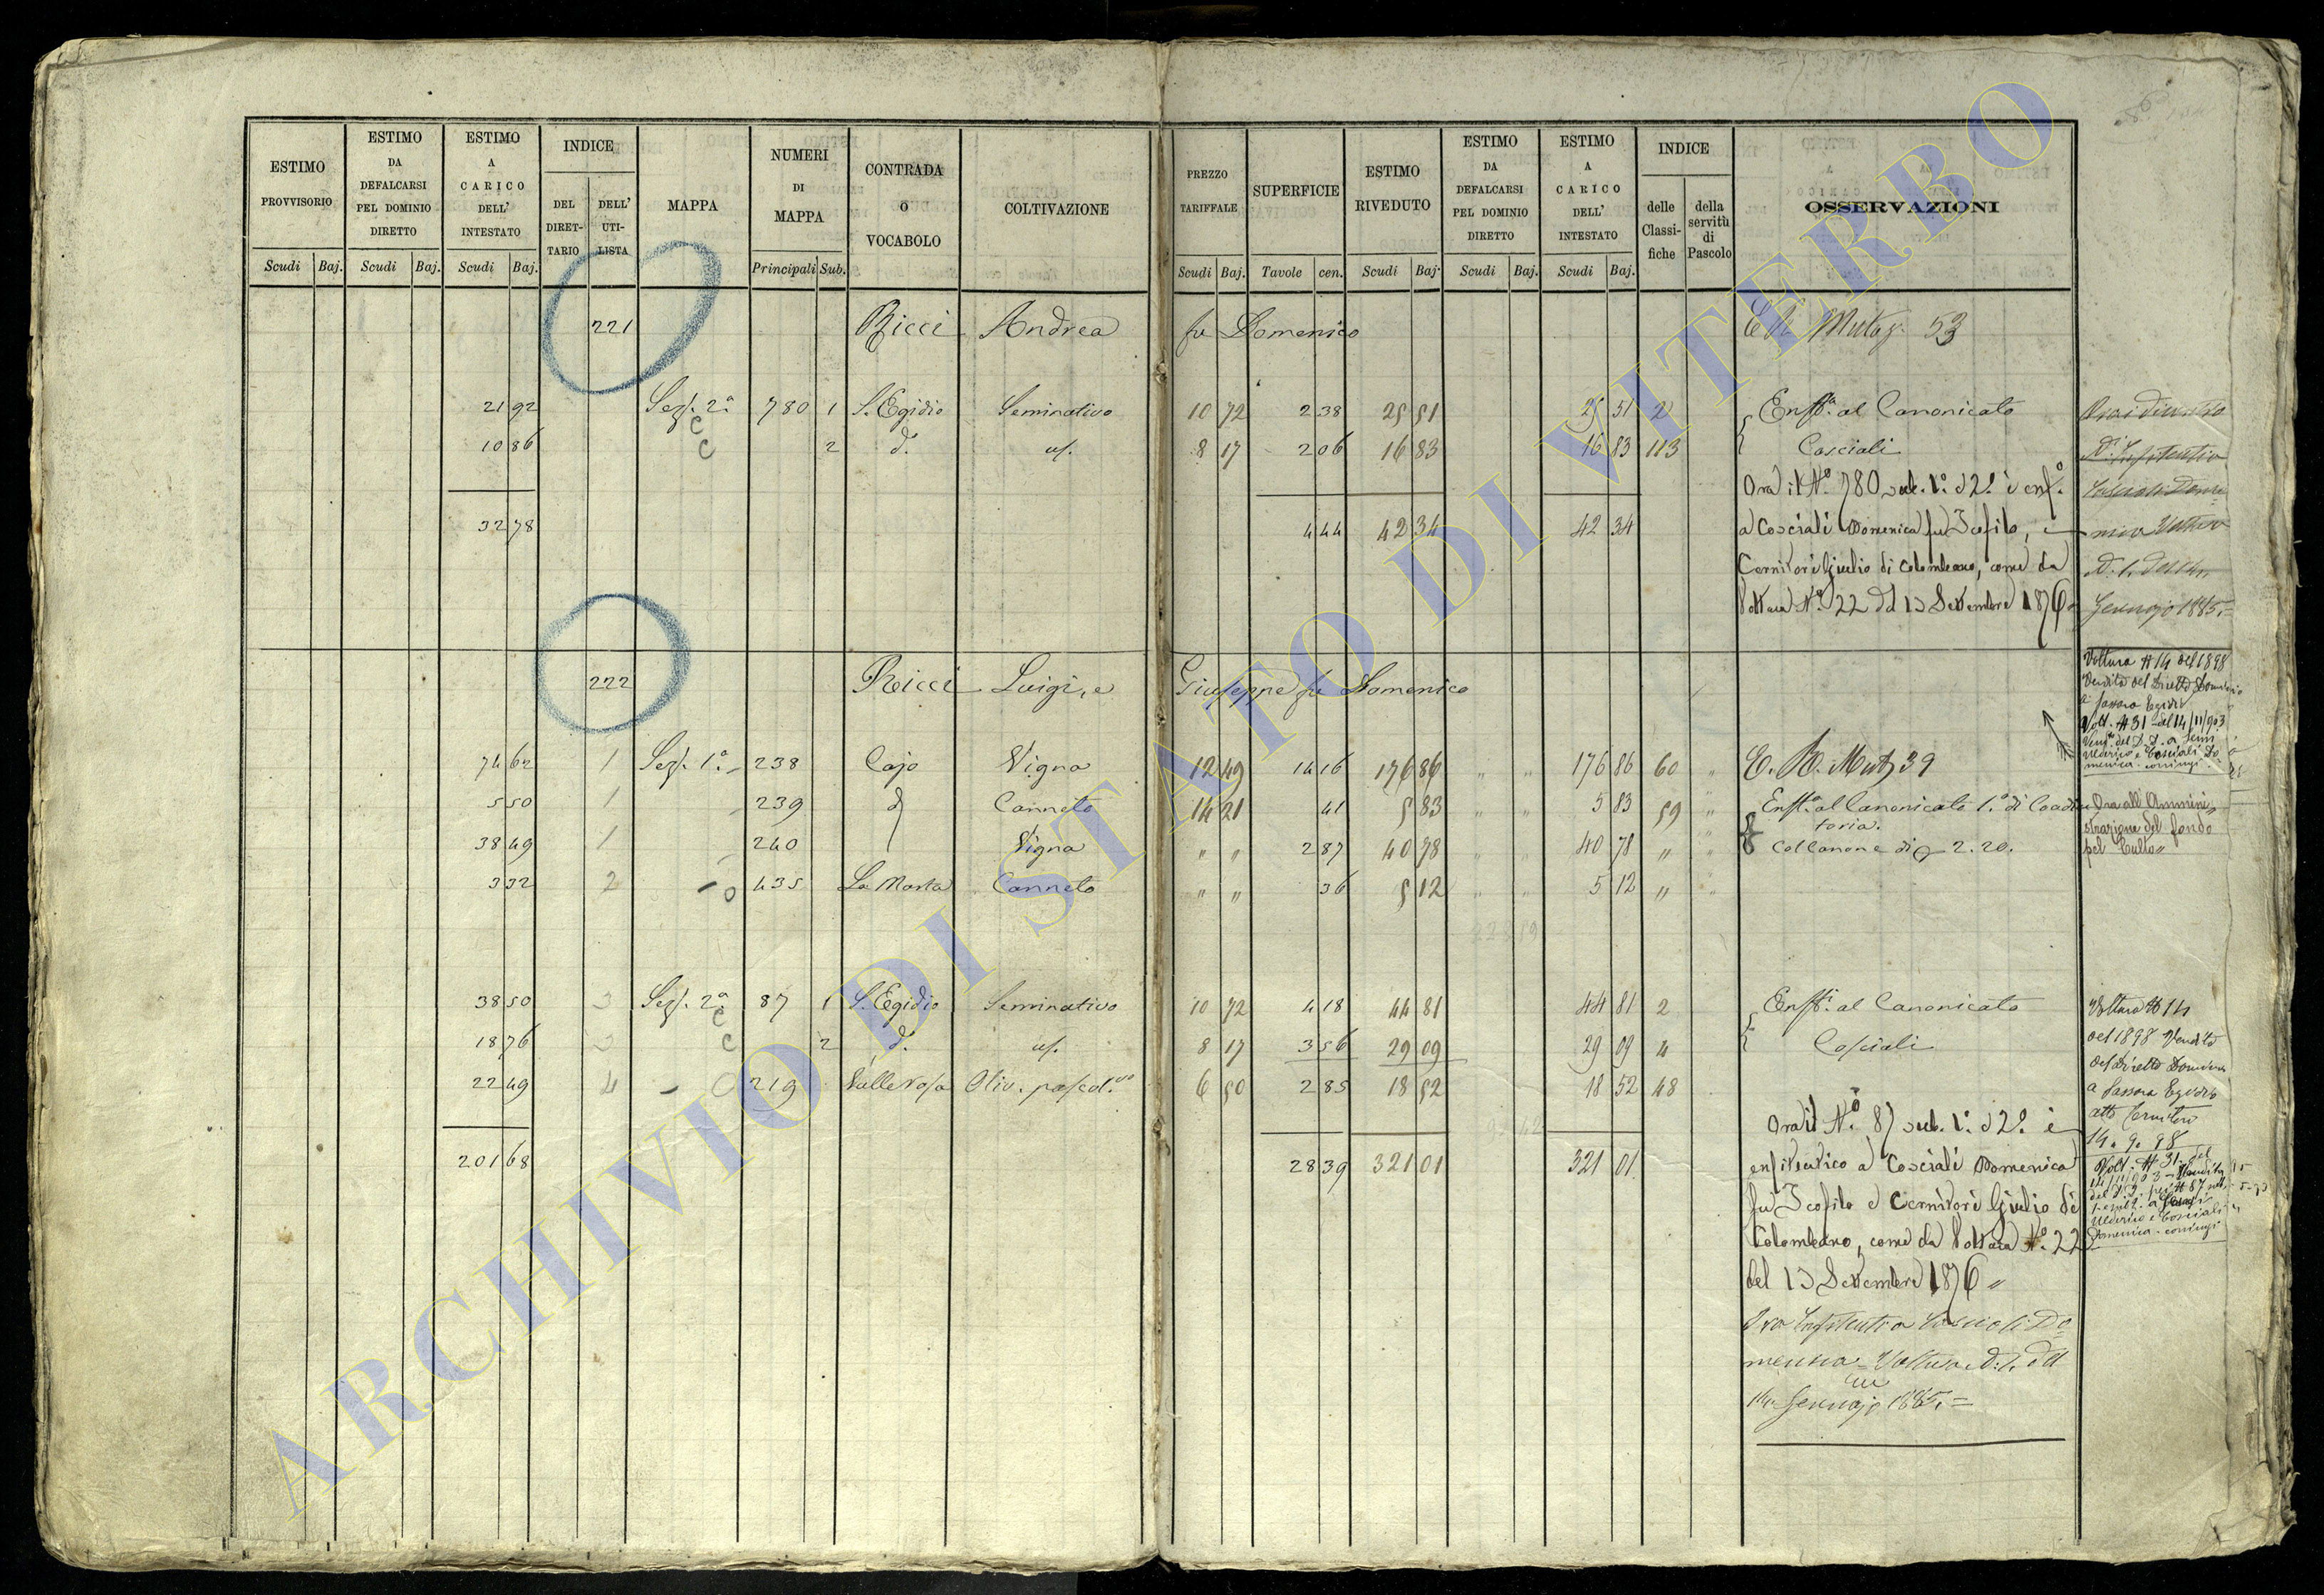 ESTIMO PROVVISORIO
ESTIMO DA DEFALCARSI PEL DOMINIO DIRETTO
ESTIMO A CARICO DELL' INTESTATO
INDICE
DEL DIRETTARIO
DELL' UTILISTA
MAPPA
NUMERI DI MAPPA
CONTRADA O VOCABOLO
COLTIVAZIONE
PREZZO TARIFFALE
SUPERFICIE
ESTIMO RIVEDUTO
ESTIMO DA DEFALCARSI PEL DOMINIO DIRETTO
ESTIMO A CARICO DELL' INTESTATO
INDICE
delle Classifiche
della servitù di Pascolo
OSSERVAZIONI
Scudi Baj. Scudi Baj. Scudi Baj. Principali Sub. Scudi Baj. Tavole cen. Scudi Baj. Scudi Baj. Scudi Baj.
221 Ricci Andrea fu Domenico 53
21 92 Sez. 2ª 780 1 S. Egidio Seminativo 10 72 2 38 25 51 25 51 2 Enfta. al Canonicato
10 86 2 dº 8 17 2 06 16 83 16 83 113 Cosciali
Ora il Nº 780 sub. 1º e 2º è enfº
32 78 4 44 42 34 42 34 a Cosciali Domenica fu Teofilo, e
Cernitori Giulio di Colombano, come da
Voltura Nº 22 del 13 Settembre 1876
Gennajo 1885
222 Ricci Luigi, e Giuseppe fu Domenico
Voltura # 14 del 1898
Vendita del Diretto Dominio
a Sassara Egidio
Volt. # 31 del 14/11/903
Domenica coniugi
74 62 1 Sez. 1ª 238 Cajo Vigna 12 49 14 16 176 86 " " 176 86 60 " C. R. Mutz 39
5 50 1 239 d Canneto 14 21 41 5 83 " " 5 83 59 " Enfta. al Canonicato 1º di Coadiu
toria.
38 49 1 240 Vigna " " 2 87 40 78 " " 40 78 " " Col Canone di 2.20.
3 32 2 435 La Marta Canneto " " 36 5 12 " " 5 12 " "
Ora all'Ammini
strazione del fondo
pel Culto
38 50 3 Sez. 2ª 87 1 S. Egidio Seminativo 10 72 4 18 44 81 44 81 2 Enfti. al Canonicato
18 76 3 2 dº 8 17 3 56 29 09 29 09 4 Cosciali
22 49 4 219 Valle Rosa Oliv. pascol.vo 6 50 2 85 18 52 18 52 48
Ora il Nº 87 sub. 1º e 2º è
201 68 28 39 321 01 321 01 enfiteutico a Cosciali Domenica
fu Teofilo e Cernitori Giulio di
Colombano, come da Voltura Nº 22
del 13 Settembre 1876 "
Ora Enfiteutica Cosciali Do
menica Voltura N. 1. del
14 Gennajo 1885. =
Voltura # 14
del 1898 Vendita
del Diretto Dominio
a Sassara Egidio
atto Cernitori
14. 9. 98
Volt. # 31 del
14/11/903 Vendita
Domenica coniugi
ARCHIVIO DI STATO DI VITERBO